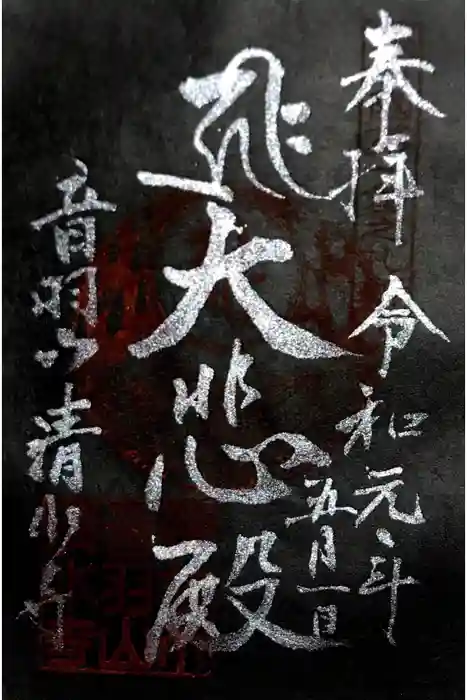 奉拝
令和元年
五月一日
大悲殿
音羽山清水寺